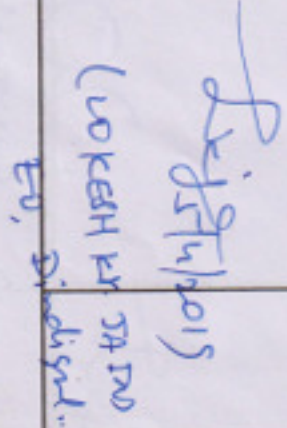 5/4/2019
(LOKESH Kr. JATAV
EO, Dindigul..